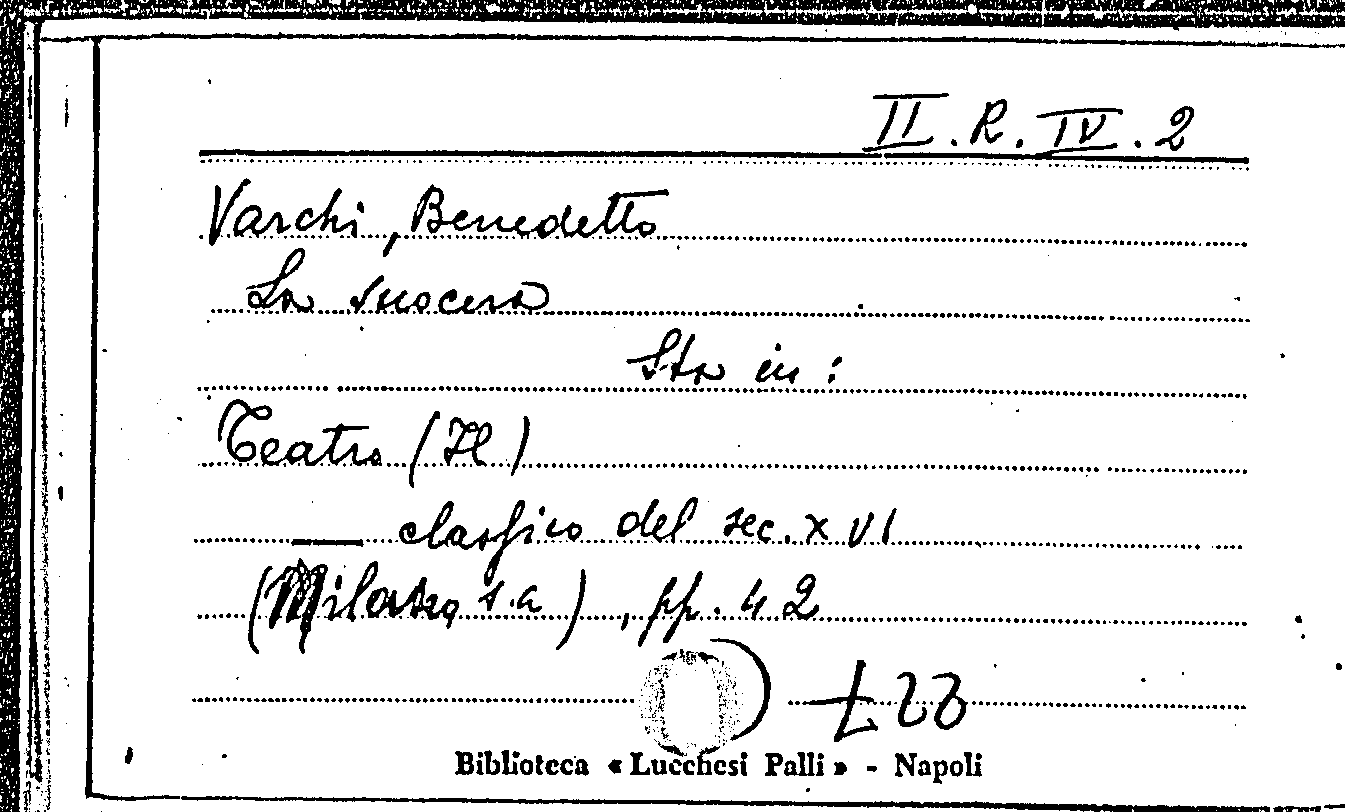 II.R.IV.2
Varchi, Benedetto
La suocera
Sta in:
Teatro (Il)
— classico del sec. XVI
(Milano s.a), pp. 42
Biblioteca « Lucchesi Palli » - Napoli